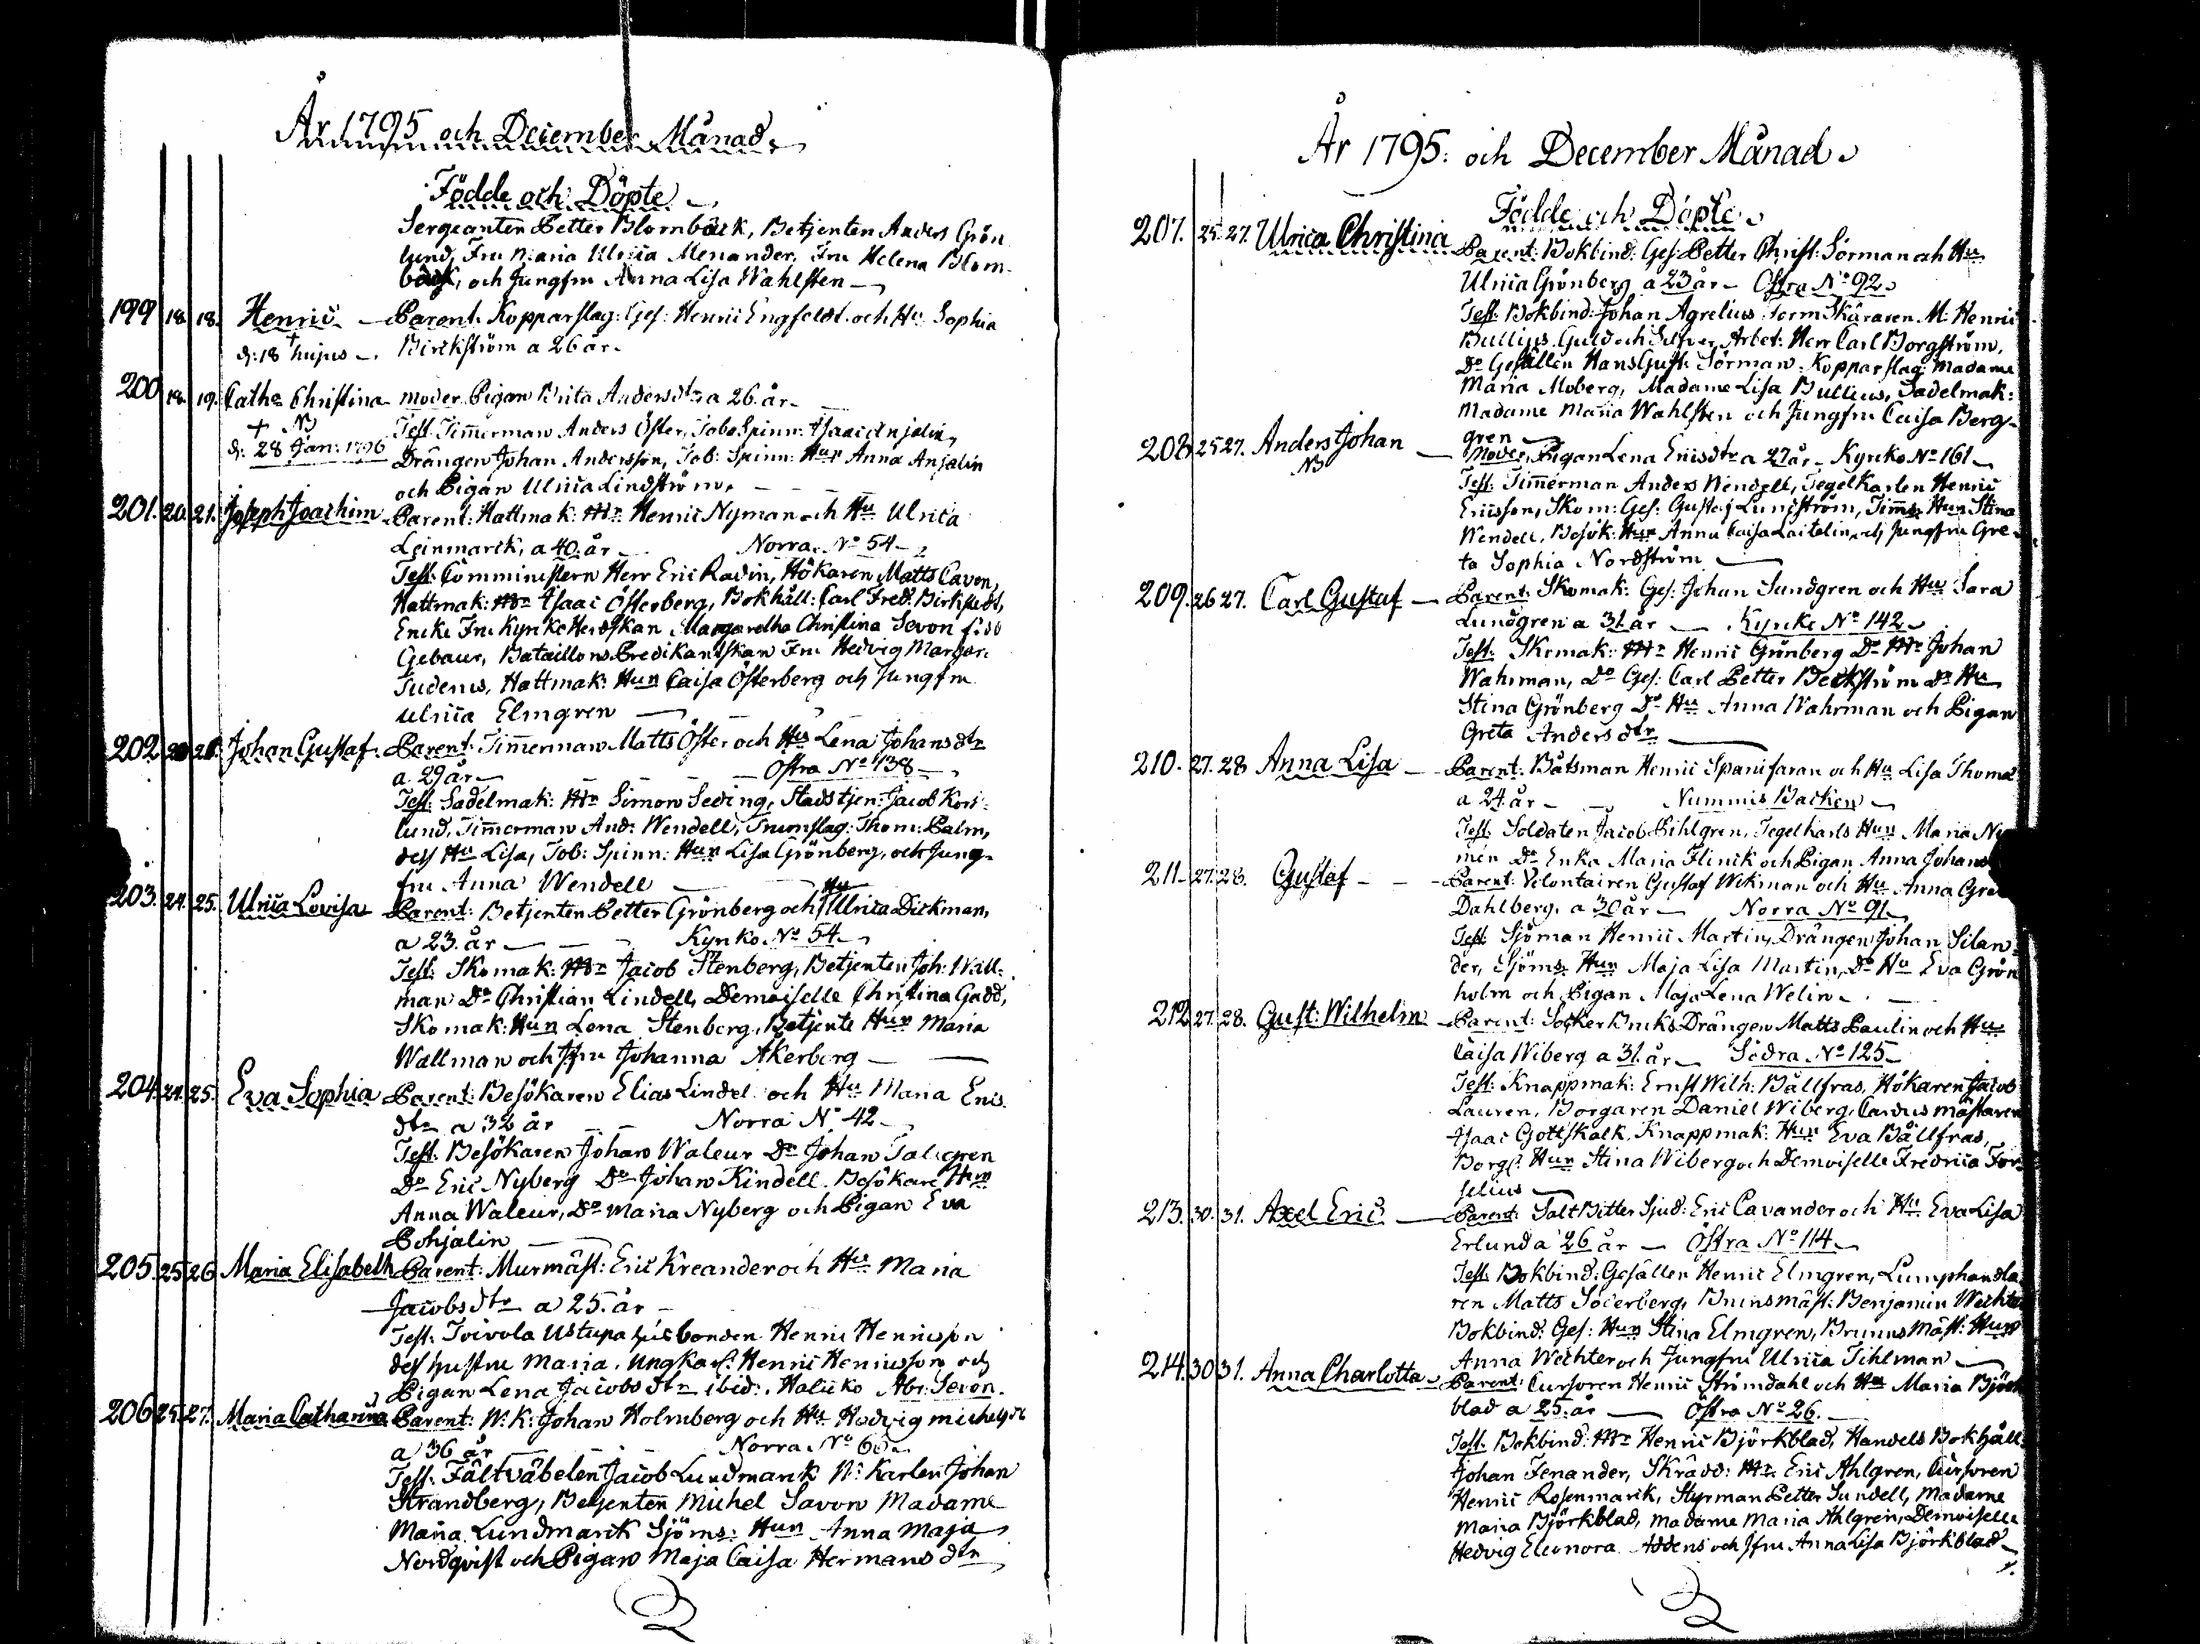 År 1795 och December Månad.
Födde och Döpte
Sergeanten Petter Blombäck, Betjenten Anders Grön
lund, Fru Maria Ulrica Menander, Fru Helena Blom-
bäck, och Jungfru Anna Lisa Wahlsten
199 18. 18. Henric Parent. Kopparslag: Ges: Henric Engfeldt och Hu Sophia
d: 18 hujus Birckström a 26 år.
200 18. 19. Catha Christina moder Pigan Brita Andersdtr a 26. år
+ NB Test. Timerman Anders Öster, Tobs Spinn: Isaac Anjelin,
d: 28 Jan: 1796 Drängen Johan Andersson, Tob: Spinn: Hur Anna Anjelin
och Pigan Ulrica Lindström.
201. 20. 21. Joseph Joachim Parent: Hattmak: Mr Henric Nyman och Hu Ulrica
Leinmarck, a 40. år Norra. No 54
Test: Comministern Herr Eric Radin, Hökaren Matts Cavon,
Hattmak: Mr Isaac Österberg, Bokhåll: Carl Fred: Birkstedt,
Encke Fru Kyrko Herdskan Margaretha Christina Sevon född
Gebaur, Bataillons Predikantskan Fru Hedvig Margar:
Tudenus, Hattmak: Hun Caisa Österberg och Jungfru
Ulrica Elmgren
202 20 20. Johan Gustaf. Parent: Timmerman Matts Öster och Hu Lena Johansdtr
a. 29 år Östra No 138
Test: Sadelmak: Mr Simon Seding, Stadstjen: Jacob Kors-
lund, Timerman And: Wendell, Trumslag: Thom: Palm,
dess Hu Lisa, Tob: Spinn: Hun Lisa Grönberg, och Jung-
fru Anna Wendell
203. 24. 25. Ulrica Lovisa Parent: Betjenten Petter Grönberg och Hu Ulrica Dickman,
a 23. år Kyrko. No 54
Test: Skomak: Mr Jacob Stenberg, Betjenten Joh: Wall-
man Do Christian Lindell, Demoiselle Christina Gadd,
Skomak: Hun Lena Stenberg, Betjente Hun Maria
Wallman och Jfru Johanna Åkerberg
204. 24. 25. Eva Sophia Parent: Besökaren Elias Lindel och Hu Maria Erics
dtr a 32 år Norra No 42
Test: Besökaren Johan Waleur Do Johan Talegren
Do Eric Nyberg Do Johan Kindell. Besökare Hun
Anna Waleur, Do Maria Nyberg och Pigan Eva
Pohjalin
205. 25 26 Maria Elisabeth Parent: Murmäst: Eric Kreander och Hu Maria
Jacobsdtr a 25. år
Test: Toivola Ustupa husbonden Henric Henricsson
dess hustru Maria. Ungkarl: Henric Henricsson och
Pigan Lena Jacobsdtr ibid: Halicko Abr: Sevon.
206 25. 27. Maria Catharina Parent: W: K: Johan Holmberg och Hu Hedvig michelsdt
a 36 år Norra No 60
Test: Fältväbelen Jacob Lundmarck W: Karlen Johan
Strandberg, Betjenten Michel Savon Madame
Maria Lundmarck Sjöms: Hun Anna Maja
Nordqvist och Pigan Maja Caisa Hermansdtr
År 1795. och December Månad.
Födde och Döpte
207. 25. 27. Ulrica Christina Parent: Bokbind: Ges: Petter Christ: Sörman och Hu
Ulrica Grönberg a 23 år Östra No 92
Test: Bokbind: Johan Agrelius Formskäraren M: Henric
Bullius. Guld och Silfver Arbet: Herr Carl Borgström,
Do Gesällen Hans Gust: Sörman. Kopparslag: Madame
Maria Moberg, Madame Lisa Bullius, Sadelmak:
Madame Maria Wahlsten och Jungfru Caisa Berg-
gren
208 25 27. Anders Johan Moder. Pigan Lena Ericsdtr a 27 år Kyrko No 161
NB Test: Timerman Anders Wendell, Tegelkarlen Henric
Ericsson, Skom: Ges: Gustaf Lundström, Tims: Hun Stina
Wendell, Besök: Hur Anna Caisa Laitelin och Jungfru Gre-
ta Sophia Nordström
209. 26 27. Carl Gustaf Parent: Skomak: Ges: Johan Sundgren och Hu Sara
Lundgren a 31 år Kyrko No 142
Test: Skomak: Mr Henric Grönberg Do Mr Johan
Wahrman, Do Ges: Carl Petter Beckström Do Hu
Stina Grönberg Do Hu Anna Wahrman och Pigan
Greta Andersdtr
210. 27. 28 Anna Lisa Parent: Båtsman Henric Spanifaran och Hu Lisa Thomæ
a 24. år Nummis Backen
Test: Soldaten Jacob Pihlgren, Tegelkarls Hun Maria Ny
men Do Enka Maria Flinck och Pigan Anna Johans
211. 27. 28. Gustaf Parent: Volontairen Gustaf Wikman och Hu Anna Gre
Dahlberg. a 30 år Norra No 91
Test: Sjöman Henric Martin, Drängen Johan Silan-
der, Sjöms: Hun Maja Lisa Martin, Do Hu Eva Grön
holm och Pigan Maja Lena Welin
212 27. 28. Gust: Wilhelm Parent: Socker Bruks Drängen Matts Paulin och Hu
Caisa Wiberg a 31. år Södra No 125
Test: Knappmak: Ernst Wilh: Bällfras, Hökaren Jacob
Lauren, Borgaren Daniel Wiberg, Cardus mästaren
Isaac Gottskalk. Knappmak: Hun Eva Bällfras,
Borgs: Hun Stina Wiberg och Demoiselle Fredrica For-
selius
213. 30. 31. Axel Eric Parent: Salt Bitter Sjud: Eric Cavander och Hu Eva Lisa
Erlund a 26 år Östra No 114
Test: Bokbind: Gesällen Henric Elmgren, Lumphandla
ren Matts Söderberg, Brunsmäst: Benjamin Wechter
Bokbind: Ges: Hun Stina Elmgren, Brunns Mäst: Hun
Anna Wechter och Jungfru Ulrica Tihlman
214. 30 31. Anna Charlotta Parent: Cursoren Henric Strömdahl och Hu Maria Björk
blad a 25. år Östra No 26.
Test: Bokbind: Mr Henric Björkblad, Handels Bokhåll:
Johan Fenander, Skrädd: Mr Eric Ahlgren, Cursoren
Henric Rosenmarck, Styrman Petter Sundell, Madame
Maria Björkblad, Madame Maria Ahlgren, Demoiselle
Hedvig Eleonora Addens och Jfru Anna Lisa Björkblad